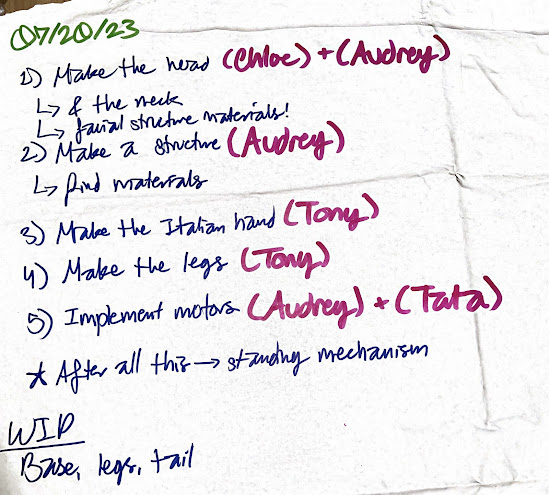 07/20/23
1) Make the head (Chloe) + (Audrey)
↳ & the neck
↳ facial structure materials!
2) Make a structure (Audrey)
↳ find materials
3) Make the Italian hand (Tony)
4) Make the legs (Tony)
5) Implement motors (Audrey) + (Tata)
* After all this → standing mechanism
WIP
Base, legs, tail